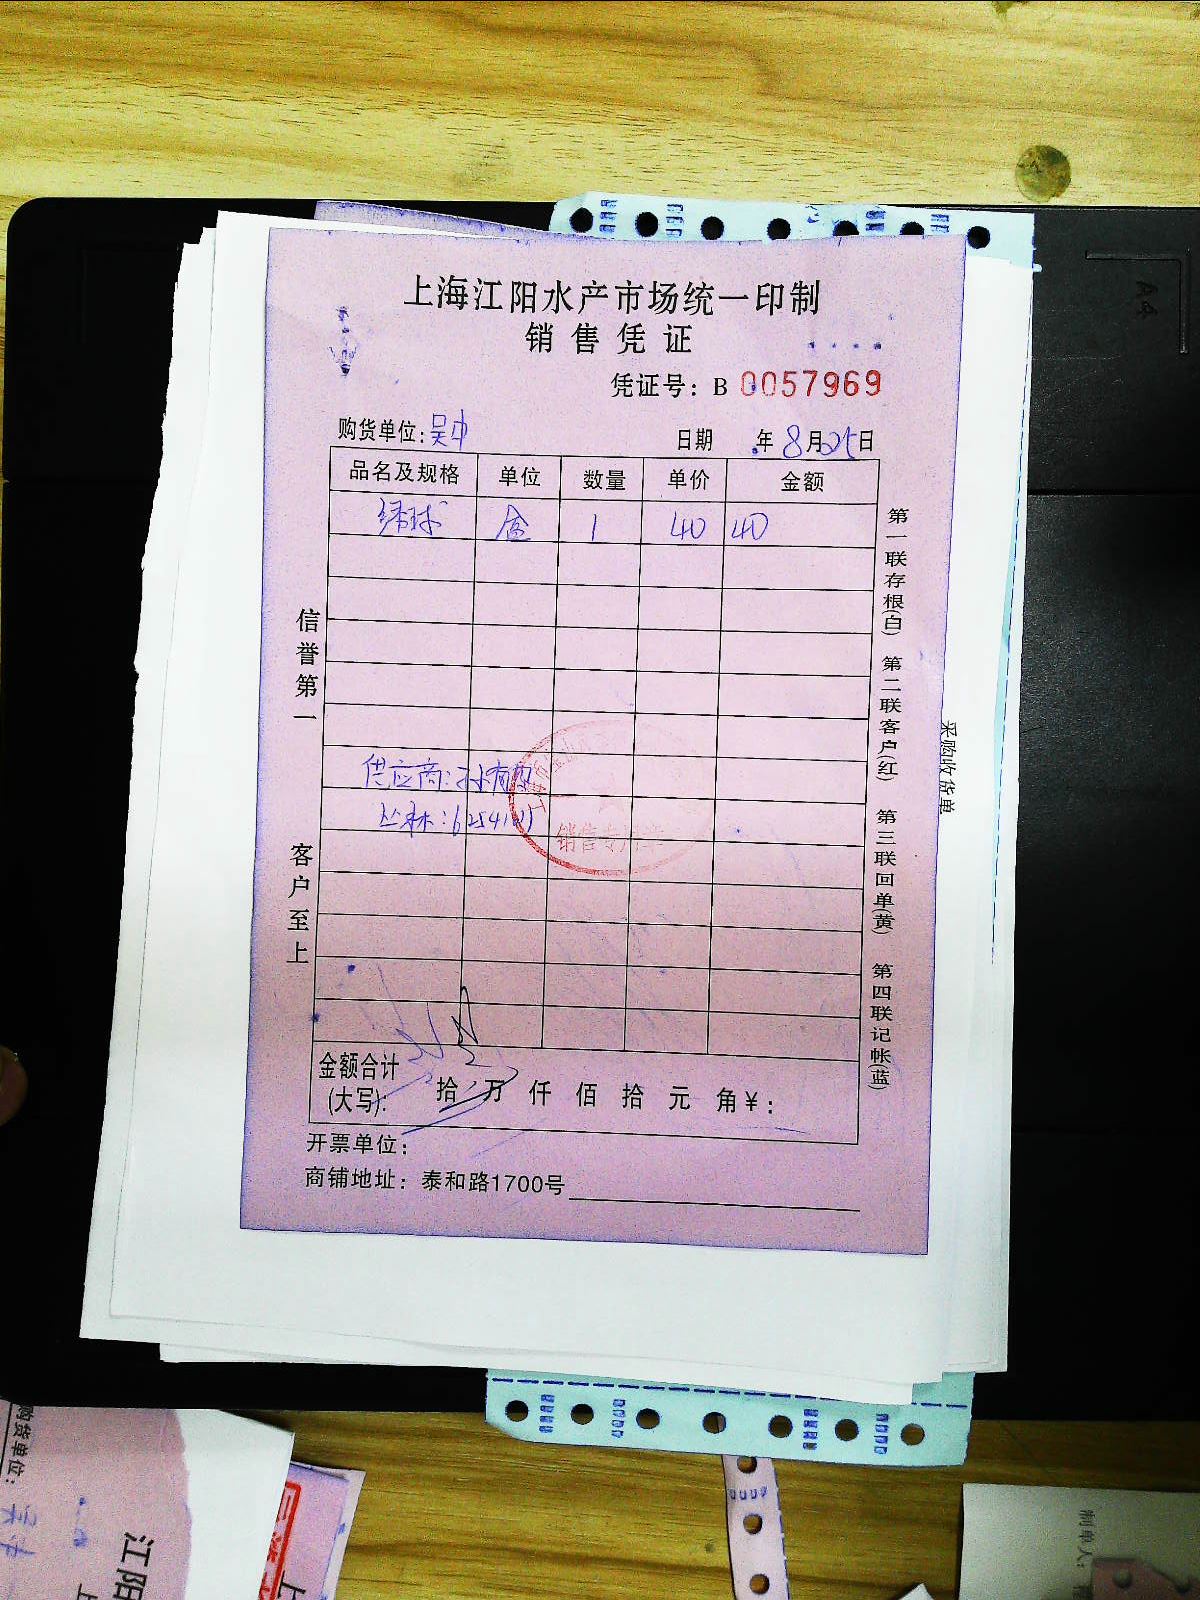 上海江阳水产市场统一印制
销售凭证
凭证号：B 0057969
购货单位：吴中
日期 年 8月25日
品名及规格 单位 数量 单价 金额
绣球 盒 1 40 40
信誉第一
客户至上
供应商：孙
丛林：
销售专用章
金额合计
(大写): 拾 万 仟 佰 拾 元 角 ¥：
开票单位：
商铺地址：泰和路1700号
第一联存根(白) 第二联客户(红) 第三联回单(黄) 第四联记帐(蓝)
采购收货单
A4
购货单位：
江阳
上
制单人：